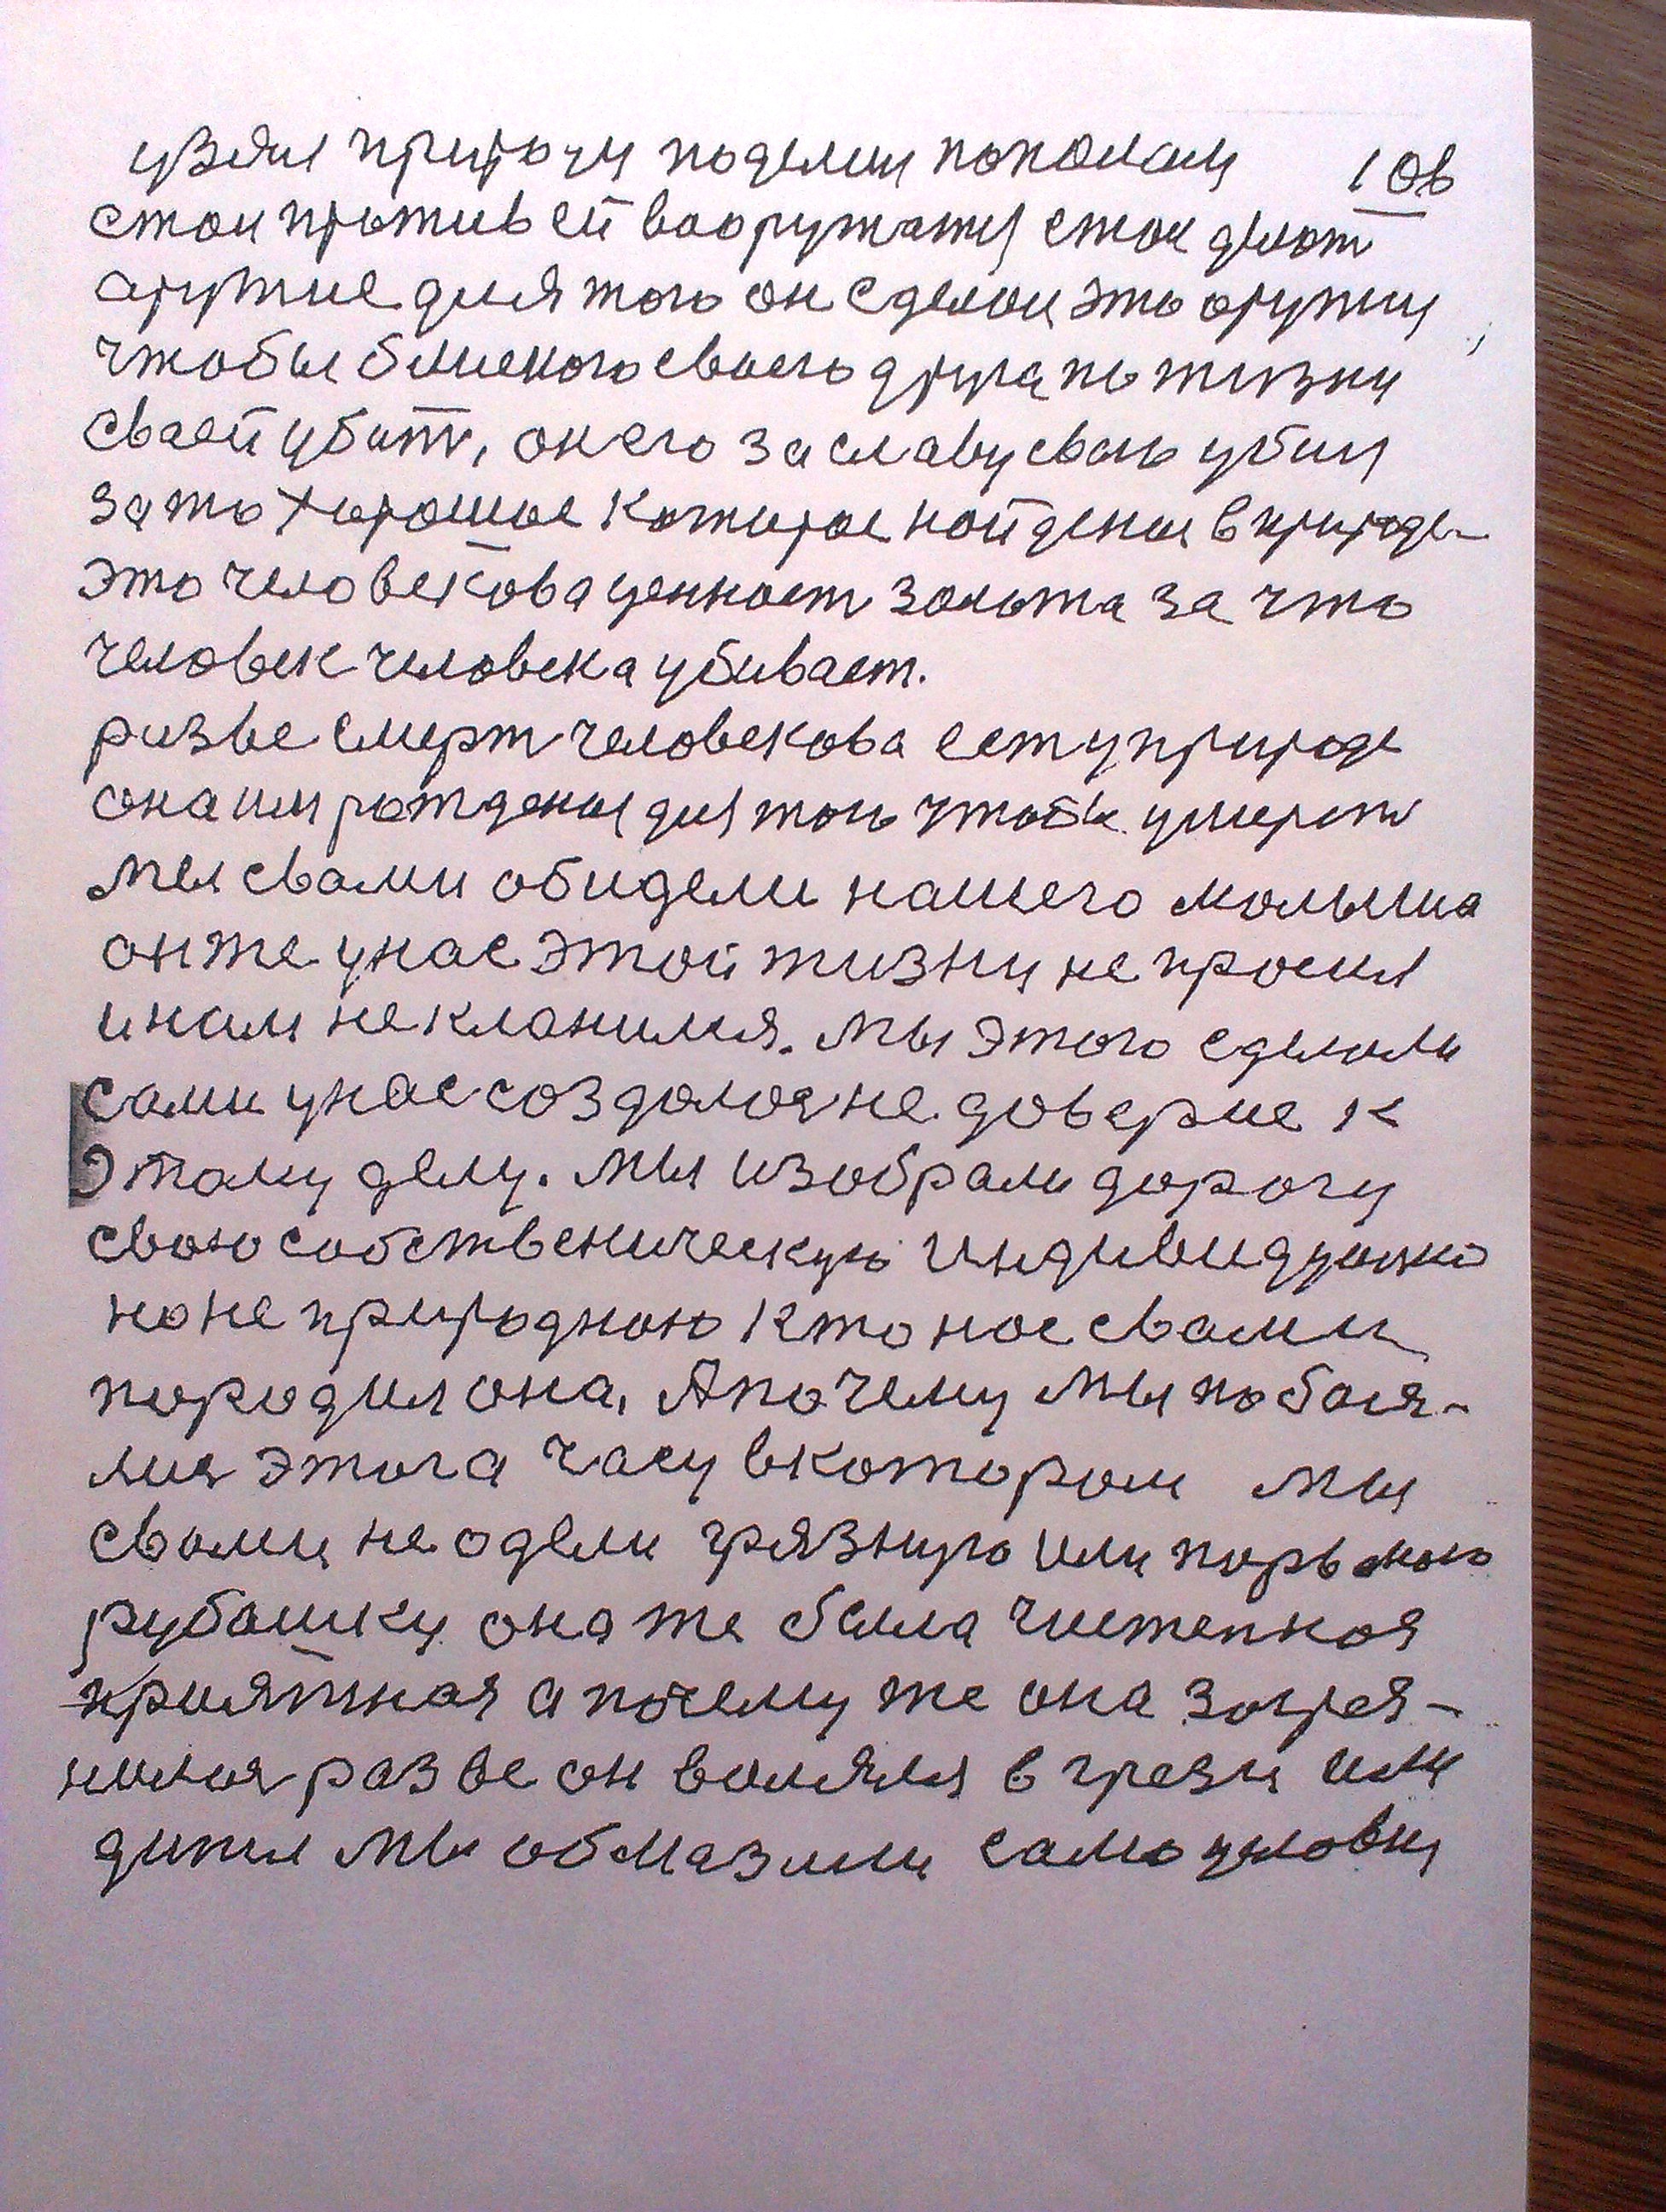 узял природу поделил пополам 106
стал против ей вооружатся стал делат
аружие для того он сделал это оружия
чтобы близкого своего друга по жизни
сваей убить, он его за славу свою убил
за то хорошое которое найдена в природе
это человекова ценност золота за что
человек человека убивает.
развве смерт человекова ест у природе
она им рождена для того чтобы умереть
мы свами обидели нашего малыша
он же унас этой жизни не просил
инам не кланился. Мы этого сделали
сами унас создалося не доверие к
этому делу. Мы изобрали дорогу
свою собственическую индивидуалко
но не природною кто нас свами
породил она. А почему мы побоя-
лися этога часу вкотором мы
свами не одели грязную или порваною
рубашку она же была чистенкая
приятная а почему же она загрея-
нилася разве он валялся в грязи или
дител мы обмазали само условия